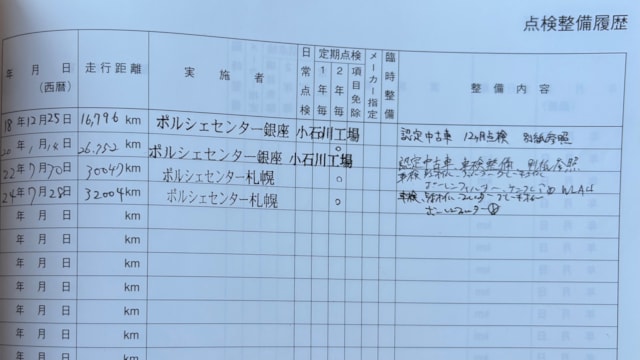 点検整備履歴
年 月 日 (西暦) 走行距離 実施者 日常点検 定期点検 1年毎 2年毎 項目免除 メーカー指定 臨時整備 整備内容
18年12月25日 16,796 km ポルシェセンター銀座 小石川工場 認定中古車 12ヶ月点検 別紙参照
20年1月18日 26,752 km ポルシェセンター銀座 小石川工場 ○ 認定中古車 車検整備 別紙参照
22年7月20日 30047 km ポルシェセンター札幌 ○ 車検
24年7月28日 32004 km ポルシェセンター札幌 ○ 車検
年 月 日 km
年 月 日 km
年 月 日 km
年 月 日 km
年 月 日 km
年 月 日 km
年 月 日 km